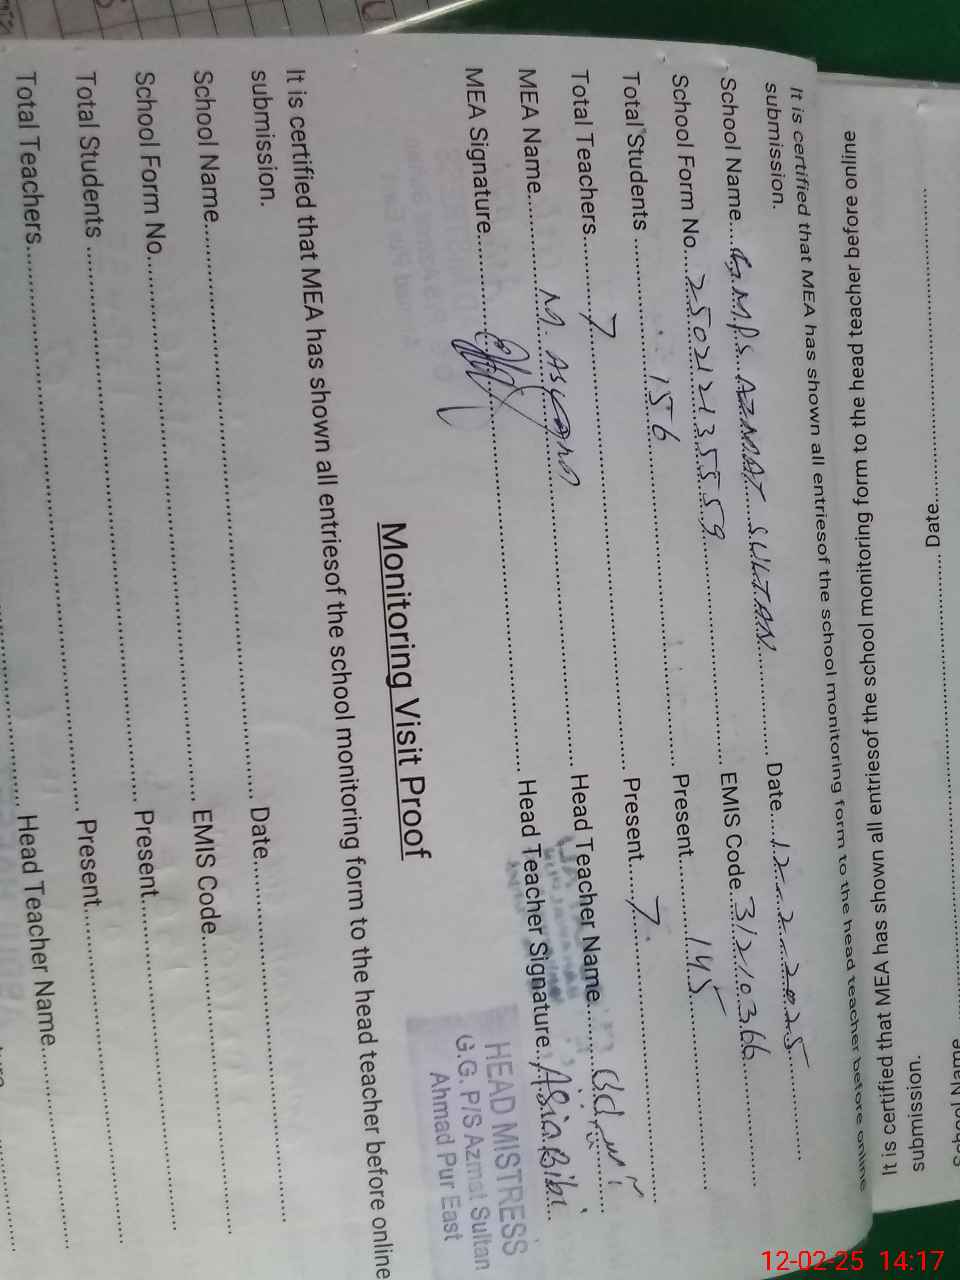 Date
It is certified that MEA has shown all entriesof the school monitoring form to the head teacher before online
submission.
It is certified that MEA has shown all entriesof the school monitoring form to the head teacher before online
submission.
School Name....G.M.P.S. AZMAT SULTAN.... Date....12-2-2025....
School Form No....25021213 5559.... EMIS Code.31210366....
Total Students....156.... Present....145....
Total Teachers....7.... Present....7....
MEA Name....M.... Head Teacher Name....آسیہ بی بی....
MEA Signature.... Head Teacher Signature..Asia Bibi..
HEAD MISTRESS
G.G. P/S Azmat Sultan
Ahmad Pur East
Monitoring Visit Proof
It is certified that MEA has shown all entriesof the school monitoring form to the head teacher before online
submission.
School Name.... Date....
School Form No.... EMIS Code....
Total Students.... Present....
Total Teachers.... Present....
Head Teacher Name....
12-02-25 14:17